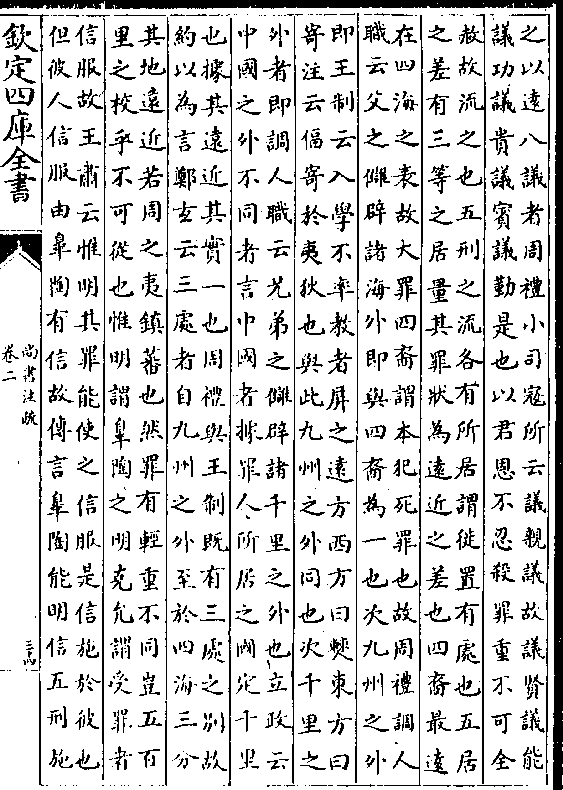 之以遠八議者周禮小司寇所云議親議故議賢議能
議功議貴議賓議勤是也以君恩不忍殺罪重不可全
赦故流之也五刑之流各有所居謂徙置有處也五居
之差有三等之居量其罪狀為遠近之差也四裔最遠
在四海之表故大罪四裔謂本犯死罪也故周禮調人
職云父之讎辟諸海外即與四裔為一也次九州之外
即王制云入學不率教者屏之遠方西方曰僰東方曰
寄注云偪寄於夷狄也與此九州之外同也次千里之
外者即調人職云兄弟之讎辟諸千里之外也立政云
中國之外不同者言中國者據罪人所居之國定千里
也據其遠近其實一也周禮與王制既有三處之別故
約以為言鄭玄云三處者自九州之外至於四海三分
其地遠近若周之夷鎮蕃也然罪有輕重不同豈五百
里之校乎不可從也惟明謂臯陶之明克允謂受罪者
信服故王肅云惟明其罪能使之信服是信施於彼也
但彼人信服由臯陶有信故傳言臯陶能明信五刑施
欽定四庫全書
尚書注疏
卷二
三四